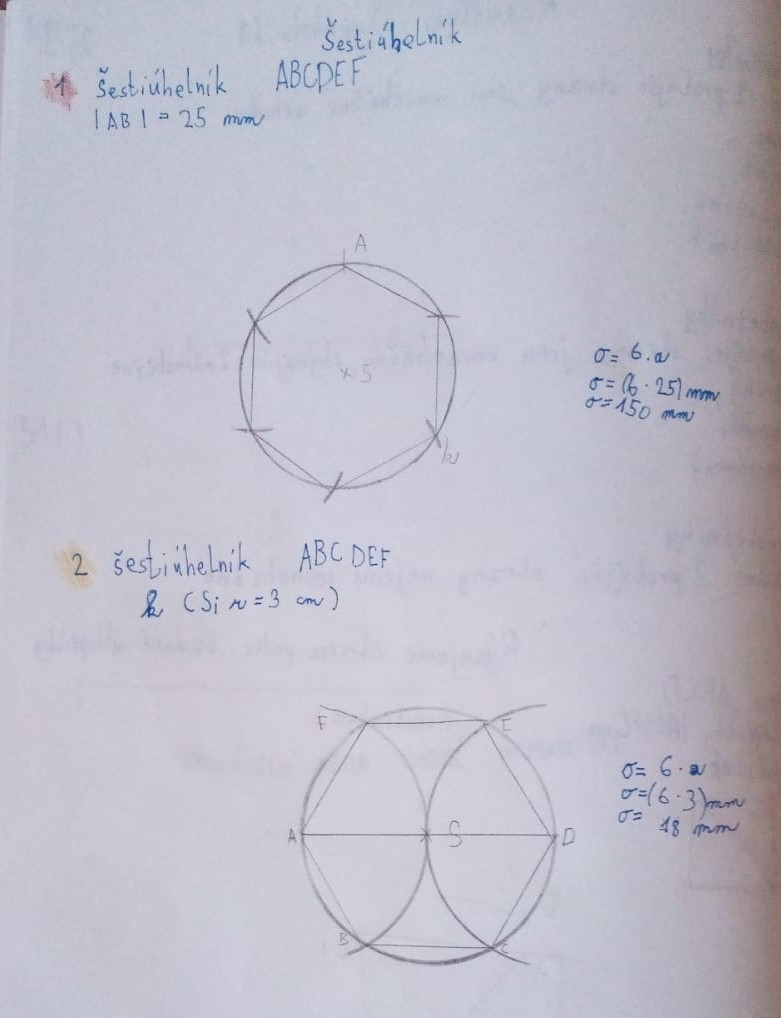 Šestiúhelník
1 šestiúhelník ABCDEF
|AB| = 25 mm
A
S
k
σ= 6.a
σ= (6 · 25) mm
σ= 150 mm
2 šestiúhelník ABCDEF
k (S; r = 3 cm)
F E
A S D
B C
σ= 6 · a
σ=(6 · 3) mm
σ= 18 mm